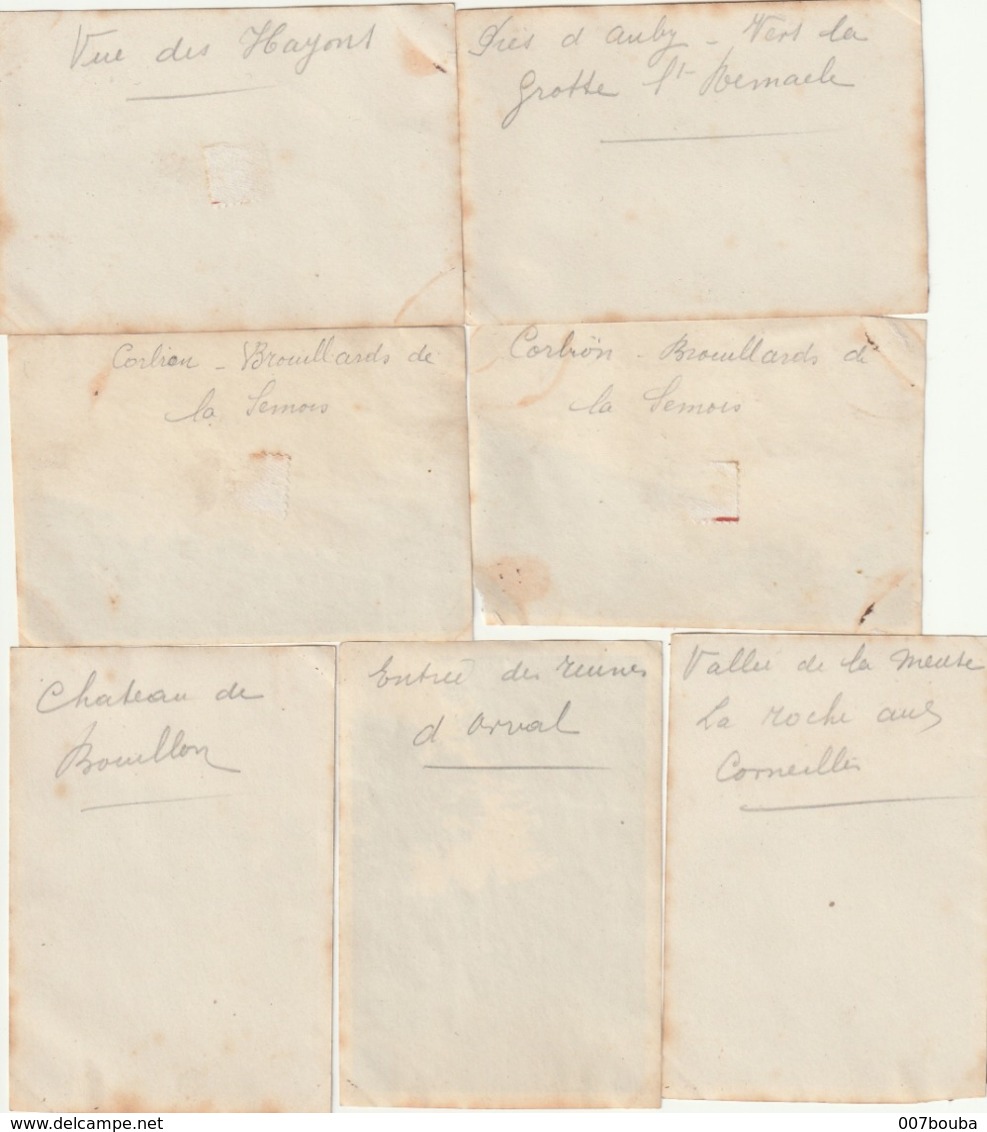 Vue des Hayons
Près d'Auby - Vers la
grotte St-Remacle
Corbion - Brouillards de
la Semois
Corbion - Brouillards de
la Semois
Chateau de
Bouillon
Entrée des ruines
d'Orval
Vallée de la Meuse
La roche aux
Corneilles
delcampe.net
007bouba